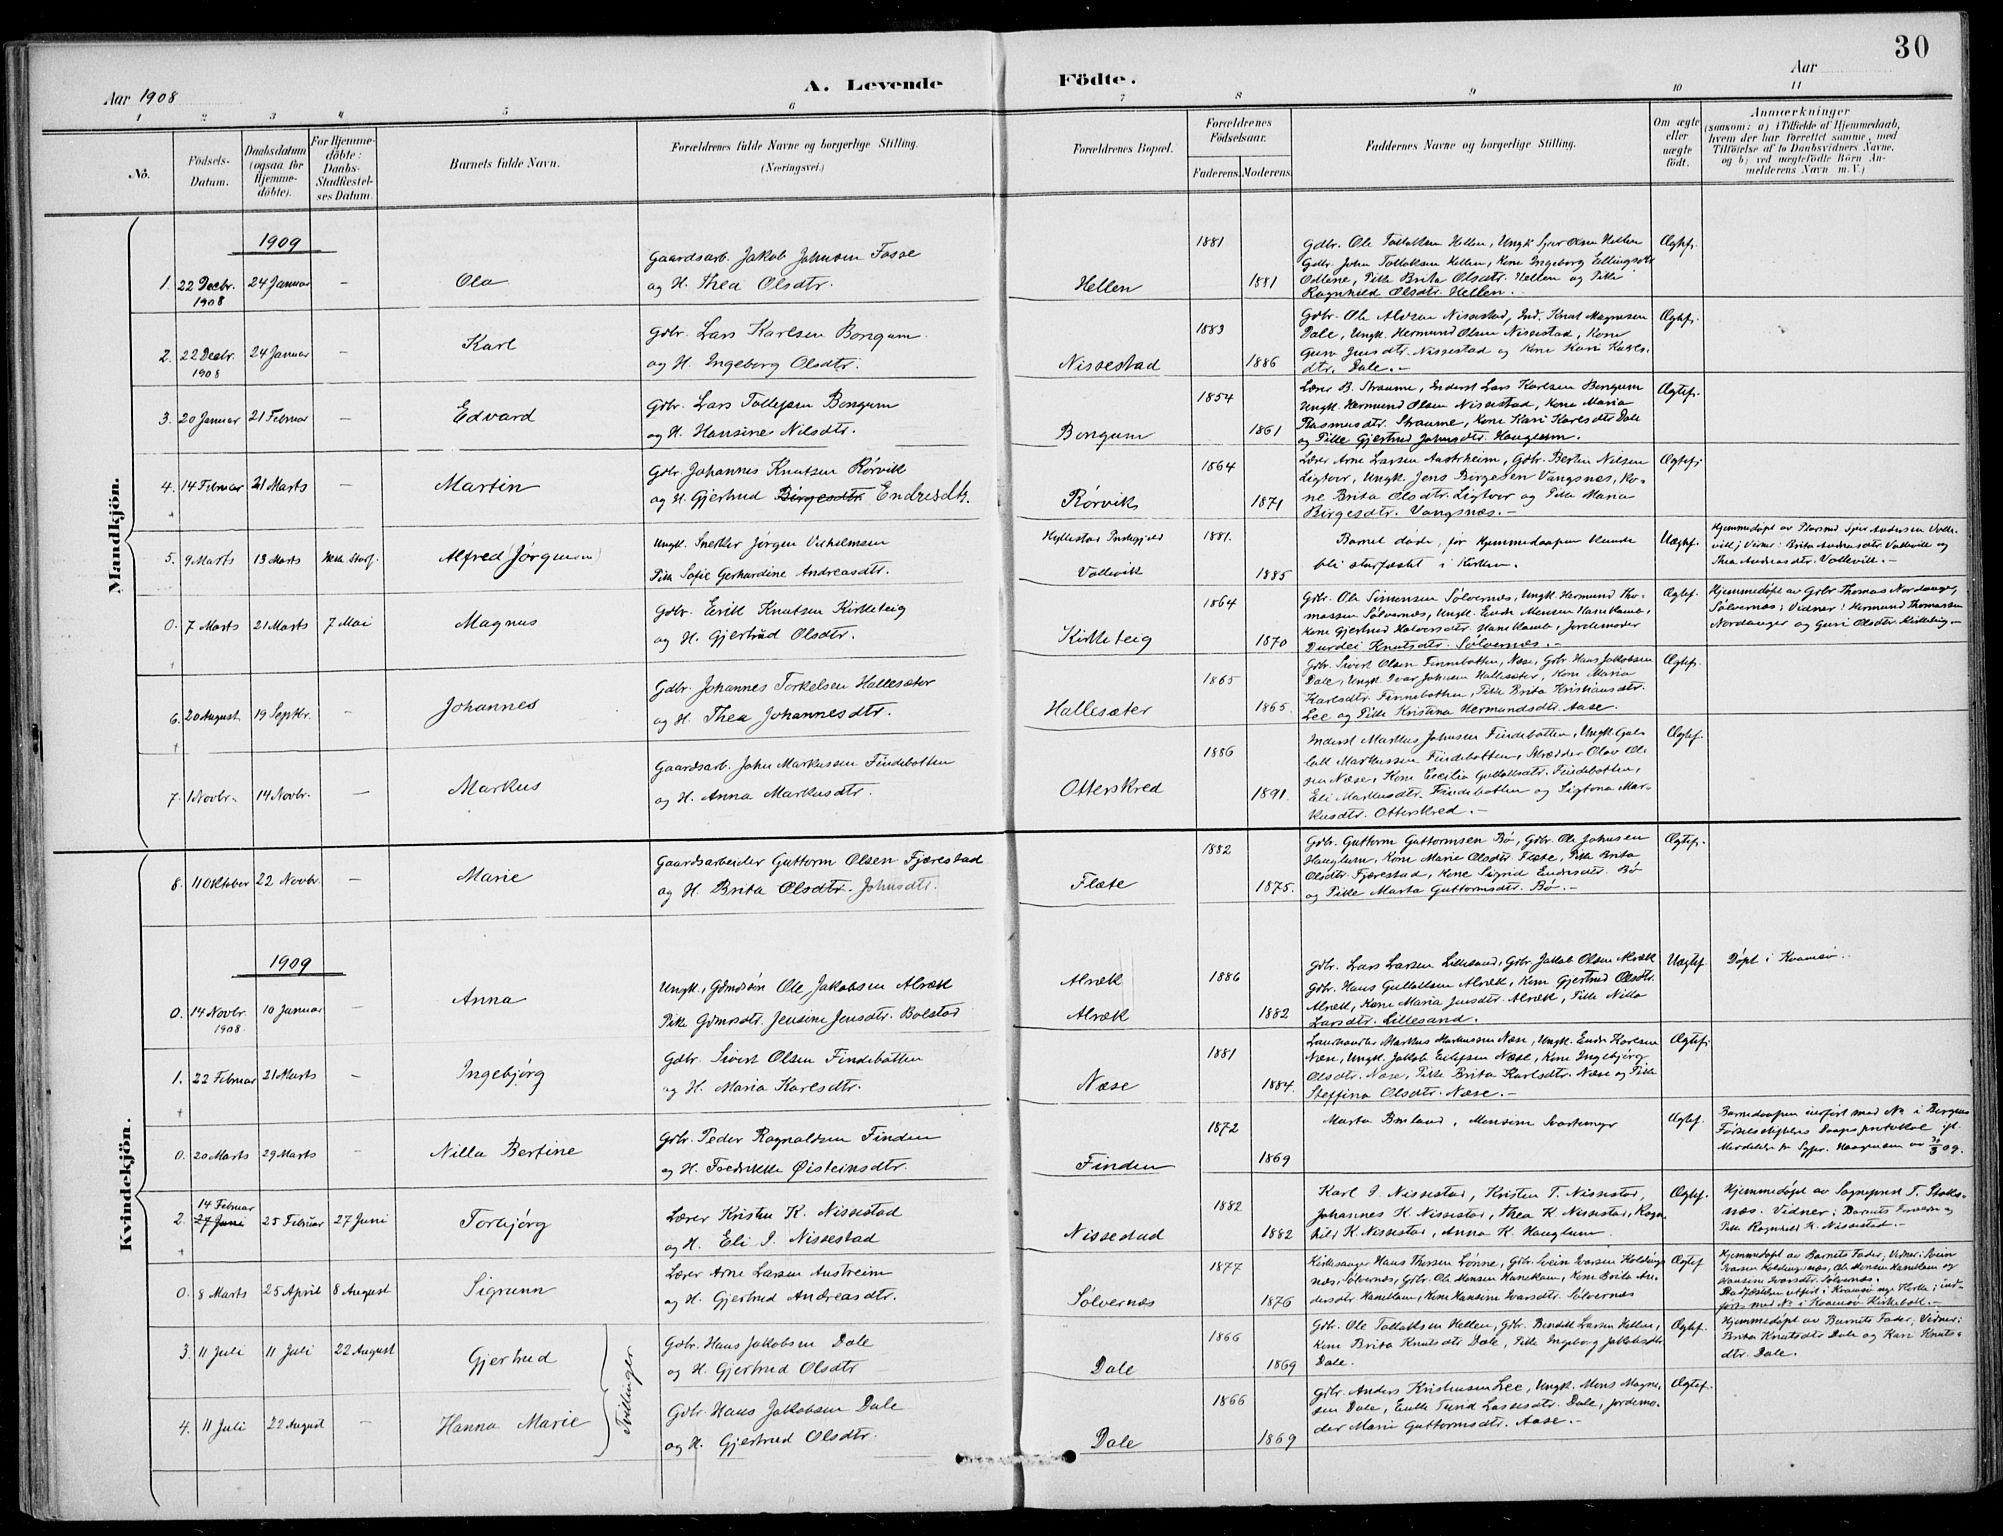 30
Aar 1908
A. Levende Födte.
Aar
1 2 3 4 5 6 7 8 9 10 11
No.
Födsels-
Datum.
Daabsdatum
(ogsaa for
Hjemme-
döbte).
For Hjemme-
döbte:
Daabs-
Stadfæstel-
ses Datum.
Barnets fulde Navn.
Forældrenes fulde Navne og borgerlige Stilling.
(Næringsvei.)
Forældrenes Bopæl.
Forældrenes
Födselsaar.
Faderens. Moderens.
Faddernes Navne og borgerlige Stilling.
Om ægte
eller
uægte
födt.
Anmærkninger
(saasom: a) i Tilfælde af Hjemmedaab,
hvem der har forrettet samme, med
Tilföielse af to Daabsvidners Navne,
og b) ved uægtefödte Börn An-
melderens Navn m. V.)
Mandkjön.
1909
1. 22 Decbr. 1908 24 Januar — Ola
Gaardsarb. Jakob Johnsen Fosse
og H. Thea Olsdtr.
Hellen 1881 1881
Gdbr. Ole Tollaksen Hellen, Ungk. Sjur Olsen Hellen
Gdbr. John Tollaksen Hellen, Kone Ingeborg Ellingsdtr.
Odlene, Pike Brita Olsdtr. Hellen og Pike
Ragnhild Olsdtr. Hellen.
Ægtef.
2. 22 Decbr. 1908 24 Januar — Karl
Gdbr. Lars Karlsen Bongum
og H. Ingeborg Olsdtr.
Nissestad 1883 1886
Gdbr. Ole Alvsen Nissestad, Ind. Knut Magnesen
Dale, Ungk. Hermund Olsen Nissestad, Kone
Guro Jensdtr. Nissestad og Kone Kari Karls-
dtr. Dale. —
Ægtef.
3. 20 Januar 21 Februar — Edvard
Gdbr. Lars Tollefsen Bongum
og H. Hansine Nilsdtr.
Bongum 1854 1861
Lærer B. Straume, Inderst Lars Karlsen Bongum
Ungk. Hermund Olsen Nissestad, Kone Maria
Rasmusdtr. Straume, Kone Kari Karlsdtr. Dale
og Pike Gjertrud Johnsdtr. Hauglum.
Ægtef.
4. 14 Februar 21 Marts — Martin
Gdbr. Johannes Knutsen Rørvik
og H. Gjertrud Birgesdtr. Endresdtr.
Rørvik 1864 1871
Lærer Arne Larsen Austrheim, Gdbr. Bertin Nilsen
Ligtvor, Ungk. Jens Birgesen Vangsnes, Ko-
ne Brita Olsdtr. Ligtvor og Pike Maria
Birgesdtr. Vangsnæs. —
Ægtef.
5. 9 Marts 13 Marts Alfred (Jørgensen)
Ungk. Snekker Jørgen Vilhelmsen
Pike Sofie Gerhardine Andreasdtr.
Vollevik 1881. 1885
Barnet døde, før hjemmedaapen kunde
bli stadfæstet i Kirken.
Uægtef.
Hjemmedøpt av Sjur Andersen Volle-
vik; Vidner: Brita Andreasdtr. Vollevik og
Thea Andreasdtr. Vollevik. —
0. 7 Marts 21 Marts 7 Mai Magnus
Gdbr. Eirik Knutsen Kirkleteig
og H. Gjertrud Olsdtr.
Kirkleteig 1864 1870
Gdbr. Ole Simensen Sølvernes, Ungk. Hermund Tho-
massen Sølvernes, Ungk. Endre Monsen Hanekamb,
Kone Gjertrud Halvorsdtr. Hanekamb, Jordemoder
Durdei Knutsdtr. Sølvernes. —
Ægtef.
Hjemmedøpt av Gdbr. Thomas Nordanger,
Sølvernes; Vidner: Hermund Thomassen
Nordanger og Guri Olsdtr. Kirkleteig —
6. 20 August 19 Septbr. — Johannes
Gdbr. Johannes Torkelsen Hallesæter
og H. Thea Johannesdtr.
Hallesæter 1865 1865.
Gdbr. Sivert Olsen Finnebotten, Næse, Gdbr. Hans Jakobsen
Dale, Ungk. Ivar Johnsen Hallesæter, Kone Maria
Karlsdtr. Finnebotten, Pike Brita Kristiansdtr.
Lee og Pike Kristina Hermundsdtr. Aase.
Ægtef.
7. 1 Novbr. 14 Novbr. — Markus
Gaardsarb. John Markussen Findebotten
og H. Anna Markusdtr.
Otterskred 1886 1891.
Inderst Markus Johnsen Findebotten, Ungk. Gul-
lak Markussen Findebotten, Skrædder Olav Ol-
sen Næse, Kone Cecilia Gullaksdtr. Findebotten,
Eli Markusdtr. Findebotten og Sigtona Mar-
kusdtr. Otterskred. —
Ægtef.
Kvindekjön.
8. 11 Oktober 22 Novbr. — Marie
Gaardsarbeider Guttorm Olsen Fjærestad
og H. Brita Olsdtr. Johnsdtr.
Flete 1882 1875.
Gdbr. Guttorm Guttormsen Bø, Gdbr. Ole Johnsen
Hauglum, Kone Marie Olsdtr. Flete, Pike Brita
Olsdtr. Fjærestad, Kone Sigrid Endresdtr. Bø
og Pike Marta Guttormsdtr. Bø. —
Ægtef.
1909
0. 14 Novbr. 1908. 10 Januar — Anna
Ungk., Gdmdsøn Ole Jakobsen Alræk
Pike Gdmdsdtr. Jensine Jensdtr. Bolstad
Alræk
Alræk 1886 1882
Gdbr. Lars Larsen Lillesand, Gdbr. Jakob Olsen Alræk
Gdbr. Hans Gullaksen Alræk, Kone Gjertrud Olsdtr.
Alræk, Kone Maria Jensdtr. Alræk, Pike Nilla
Larsdtr. Lillesand.
Uægtef.
Døpt i Kvamsø.
1. 22 Februar 21 Marts — Ingebjørg
Gdbr. Sivert Olsen Findebotten
og H. Maria Karlsdtr.
Næse 1881 1884.
Landhandler Markus Markussen Næse, Ungk. Endre Karlsen
Næse, Ungk. Jakob Eilefsen Næse, Kone Ingebjørg
Olsdtr. Næse, Pike Brita Karlsdtr. Næse og Pike
Steffina Olsdtr. Næse. —
Ægtef.
0. 20 Marts 29 Marts Nilla Bertine
Gdbr. Peder Ragnaldsen Finden
og H. Fredrikke Øisteinsdtr.
Finden 1872 1869
Marta Bruland, Monsine Svortinger
Ægtef.
Barnedaapen indført med No i Bergens
Fødselsstiftelses Daapsprotokol ifl.
Meddelelse fr. Sygepr. Haagensen av 09.
2. 14 Februar 27 Juni 25 Februar 27 Juni Torbjørg
Lærer Kristen K. Nissestad
og H. Eli I. Nissestad
Nissestad 1882 1882
Karl I. Nissestad, Kristen T. Nissestad,
Johannes K. Nissestad, Thea K. Nissestad, Ragn-
hild K. Nissestad, Anna K. Hauglum.
Ægtef.
Hjemmedøpt av Sogneprest T. Stoks-
næs. Vidner: Barnets Forældre og
Pike Ragnhild K. Nissestad. —
0. 8 Marts 25 April 8 August Sigrunn
Lærer Arne Larsen Austreim
og H. Gjertrud Andreasdtr.
Sølvernæs 1877 1876
Kirkesanger Hans Thorsen Lønne, Gdbr. Svein Ivarsen Koldings-
næs, Sølvernes, Gdbr. Ole Monsen Hanekam, Kone Brita An-
dersdtr. Hanekam, Kone Hansine Ivarsdtr. Sølvernæs
Ægtef
Hjemmedøpt av Barnets Fader; Vidner: Svein
Ivarsen Koldingsnæs, Ole Monsen Hanekam og
Hansine Ivarsdtr. Sølvernæs.
Stadfæstelsen utført i Kvamsø nye Kirke; ind-
ført med No i Kvamsø Kirkebok. —
3. 11 Juli 11 Juli 22 August Gjertrud
Tvillinger
Gdbr. Hans Jakobsen Dale
og H. Gjertrud Olsdtr
Dale 1866 1869
Gdbr. Ole Tollaksen Hellen, Gdbr. Bendik Larsen Hellen,
Kone Brita Knutsdtr. Dale, Pike Ingeborg Jakobsdtr.
Dale.
Ægtef.
Hjemmedøpt av Barnets Fader; Vidner:
Brita Knutsdtr. Dale og Kari Knuts-
dtr. Dale.
4. 11 Juli 22 August — Hanna Marie
Gdbr. Hans Jakobsen Dale
og H. Gjertrud Olsdtr.
Dale 1866 1869
Gdbr. Anders Kristensen Lee, Ungk. Mons Magne-
sen Dale, Enke Turid Lassesdtr. Dale, Jordemo-
der Marie Guttormsdtr. Aase. —
Ægtef.